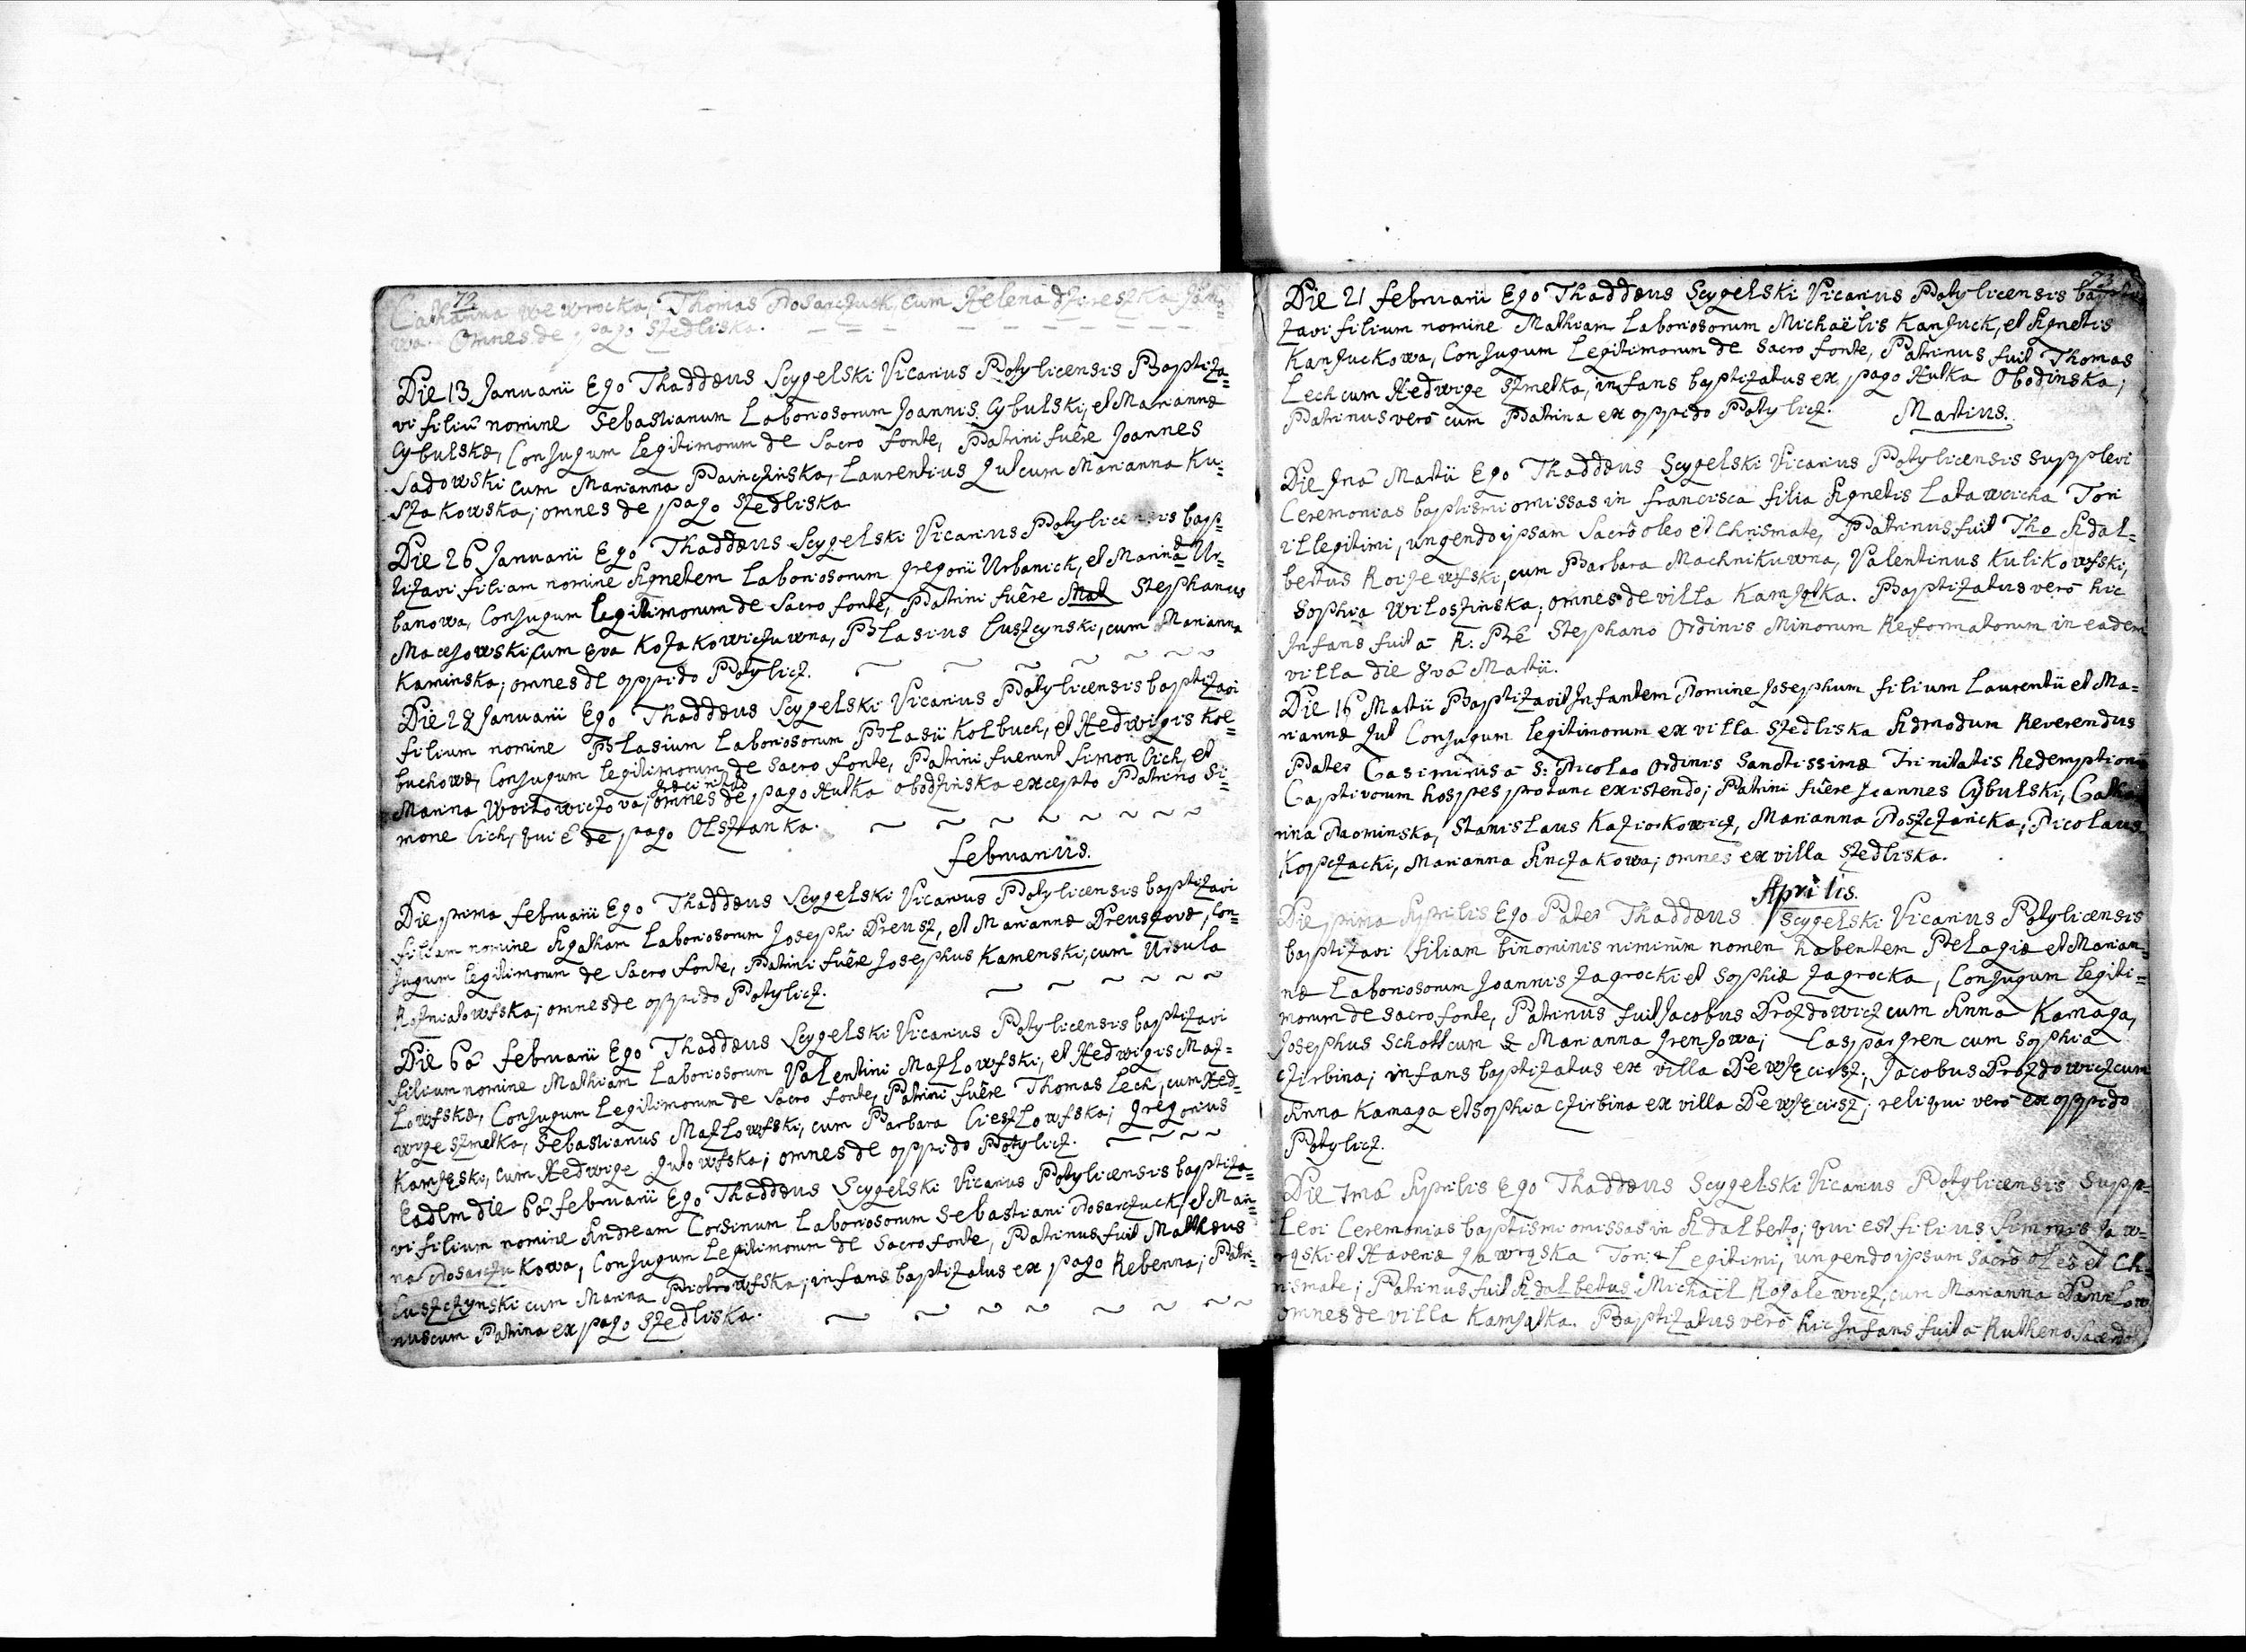 72
Catharina Wewrocka, Thomas Nosarczuck, cum Helena
wa. Omnes de pago Szedliska.
Die 13 Januarii Ego Thaddæus Scygelski Vicarius Potylicensis Baptiza=
vi filiū nomine Sebastianum Laboriosorum Joannis Cybulski, et Mariannæ
Cybulskæ, Conjugum Legitimorum de Sacro fonte, Patrini fuêre Joannes
Sadowski cum Marianna Painczinska, Laurentius Gut cum Marianna Ku=
szakowska; omnes de pago Szedliska
Die 26 Januarii Ego Thaddæus Scygelski Vicarius Potylicensis bapt=
tizavi filiam nomine Agnetem Laboriosorum Gregorii Urbanick, et Marina Ur=
banowa, Conjugum legitimorum de Sacro fonte, Patrini fuêre Stephanus
Macejowski, cum Eva Kozakowiczuwna, Blasius Luszcynski, cum Marianna
Kaminska; omnes de oppido Potylicz.
Die 28 Januarii Ego Thaddæus Scygelski Vicarius Potylicensis baptizavi
filium nomine Blasium Laboriosorum Blasii Kolbuch, et Hedwigis Kol=
buchowæ, Conjugum legitimorum de Sacro fonte, Patrini fuerunt Simon Cich, et
Marina Woitowiczova; omnes de pago Hutka obodzinska excepto Patrino Si=
mone Cich, qui ē de pago Olszanka.
Februarius.
Die prima Februarii Ego Thaddæus Scygelski Vicarius Potylicensis baptizavi
filiam nomine Agatham Laboriosorum Josephi Dreusz, et Mariannæ Dreuszovæ, Con=
jugum legitimorum de Sacro fonte, Patrini fuêre Josephus Kamenski, cum Ursula
Rozniatowfska; omnes de oppido Potylicz.
Die 6ā Februarii Ego Thaddæus Scygelski Vicarius Potylicensis baptizavi
filium nomine Mathiam Laboriosorum Valentini Mazlowfski, et Hedwigis Maz=
lowfskæ, Conjugum Legitimorum de Sacro fonte, Patrini fuêre Thomas Leck, cum Hed=
wige Szmelka, Sebastianus Mazlowfski, cum Barbara Cieszlowfska; Gregorius
Kamjęski, cum Hedwige Gutowfska; omnes de oppido Potylicz.
Eadem die 6ā Februarii Ego Thaddæus Scygelski Vicarius Potylicensis baptiza=
vi filium nomine Andream Corsinum Laboriosorum Sebastiani Nosarczuck, et Mari=
na Nosarczukowa, Conjugum Legitimorum de Sacro fonte, Patrinus fuit Matthæus
Luszczynski cum Marina Piotrowfska; infans baptizatus ex pago Rebenna; Patri=
nus cum Patrina ex pago Szedliska.
73
Die 21 Februarii Ego Thaddæus Scygelski Vicarius Potylicensis bapti
zavi filium nomine Mathiam Laboriosorum Michaëlis Kanjuck, et Agnetis
Kanjuckowa, Conjugum Legitimorum de Sacro fonte, Patrinus fuit Thomas
Leck cum Hedwige Szmelka, infans baptizatus ex pago Hutka Obodinska;
Patrinus verō cum Patrina ex oppido Potylicz. Martius.
Die Martii Ego Thaddæus Scygelski Vicarius Potylicensis supplevi
Ceremonias baptismi omissas in Francisca filia Agnetis Latawcicka Tori
illegitimi, ungendo ipsam Sacrō oleo et Chrismate, Patrinus fuit Tho Adal=
bertus Roizewfski, cum Barbara Machnikuwna, Valentinus Kulikowfski,
Sophia Wiloszinska, omnes de villa Kamjątka. Baptizatus verō hic
Infans fuit ā R: Prē Stephano Ordinis Minorum Reformatorum in eadem
villa die Martii.
Die 16 Martii Baptizavit Infantem Nomine Josephum filium Laurentii et Ma=
riannæ Gut Conjugum legitimorum ex villa Szedliska Admodum Reverendus
Pater Casimirus ā S: Nicolao Ordinis Sanctissimæ Trinitatis Redemptionis
Captivorum hospes protunc existendo; Patrini fuêre Joannes Cybulski, Catha
rina Nominska, Stanislaus Kaziorkowicz, Marianna Noszczancka, Nicolaus
Kopczacki, Marianna Anczakowa; omnes ex villa Szedliska.
Aprilis.
Die prima Aprilis Ego Pater Thaddæus Scygelski Vicarius Potylicensis
baptizavi filiam binominis nimirùm nomen habentem Pelagiæ et Marian=
næ Laboriosorum Joannis Zagrocki et Sophiæ Zagrocka, Conjugum legiti=
morum de sacro fonte, Patrinus fuit Jacobus Drozdowicz cum Anna Kamaga,
Josephus Schott cum & Marianna Grenjowa; Caspar Gren cum Sophia
Czirbina; infans baptizatus ex villa Dewięcirz; Jacobus Drozdowicz cum
Anna Kamaga et Sophia Czirbina ex villa Dewięcirz; reliqui verō ex oppido
Potylicz.
Die 7mā Aprilis Ego Thaddæus Scygelski Vicarius Potylicensis Supp=
levi Ceremonias baptismi omissas in Adalberto; qui est filius Simonis Jaw=
rąski et Haveniæ Jawrąska Tori Legitimi, ungendo ipsum Sacrō oleō et Ch=
rismate; Patrinus fuit Adalbertus Michaël Rogalewicz, cum Marianna
omnes de villa Kamjątka. Baptizatus verō hic Infans fuit ā Rutheno Sacerdo